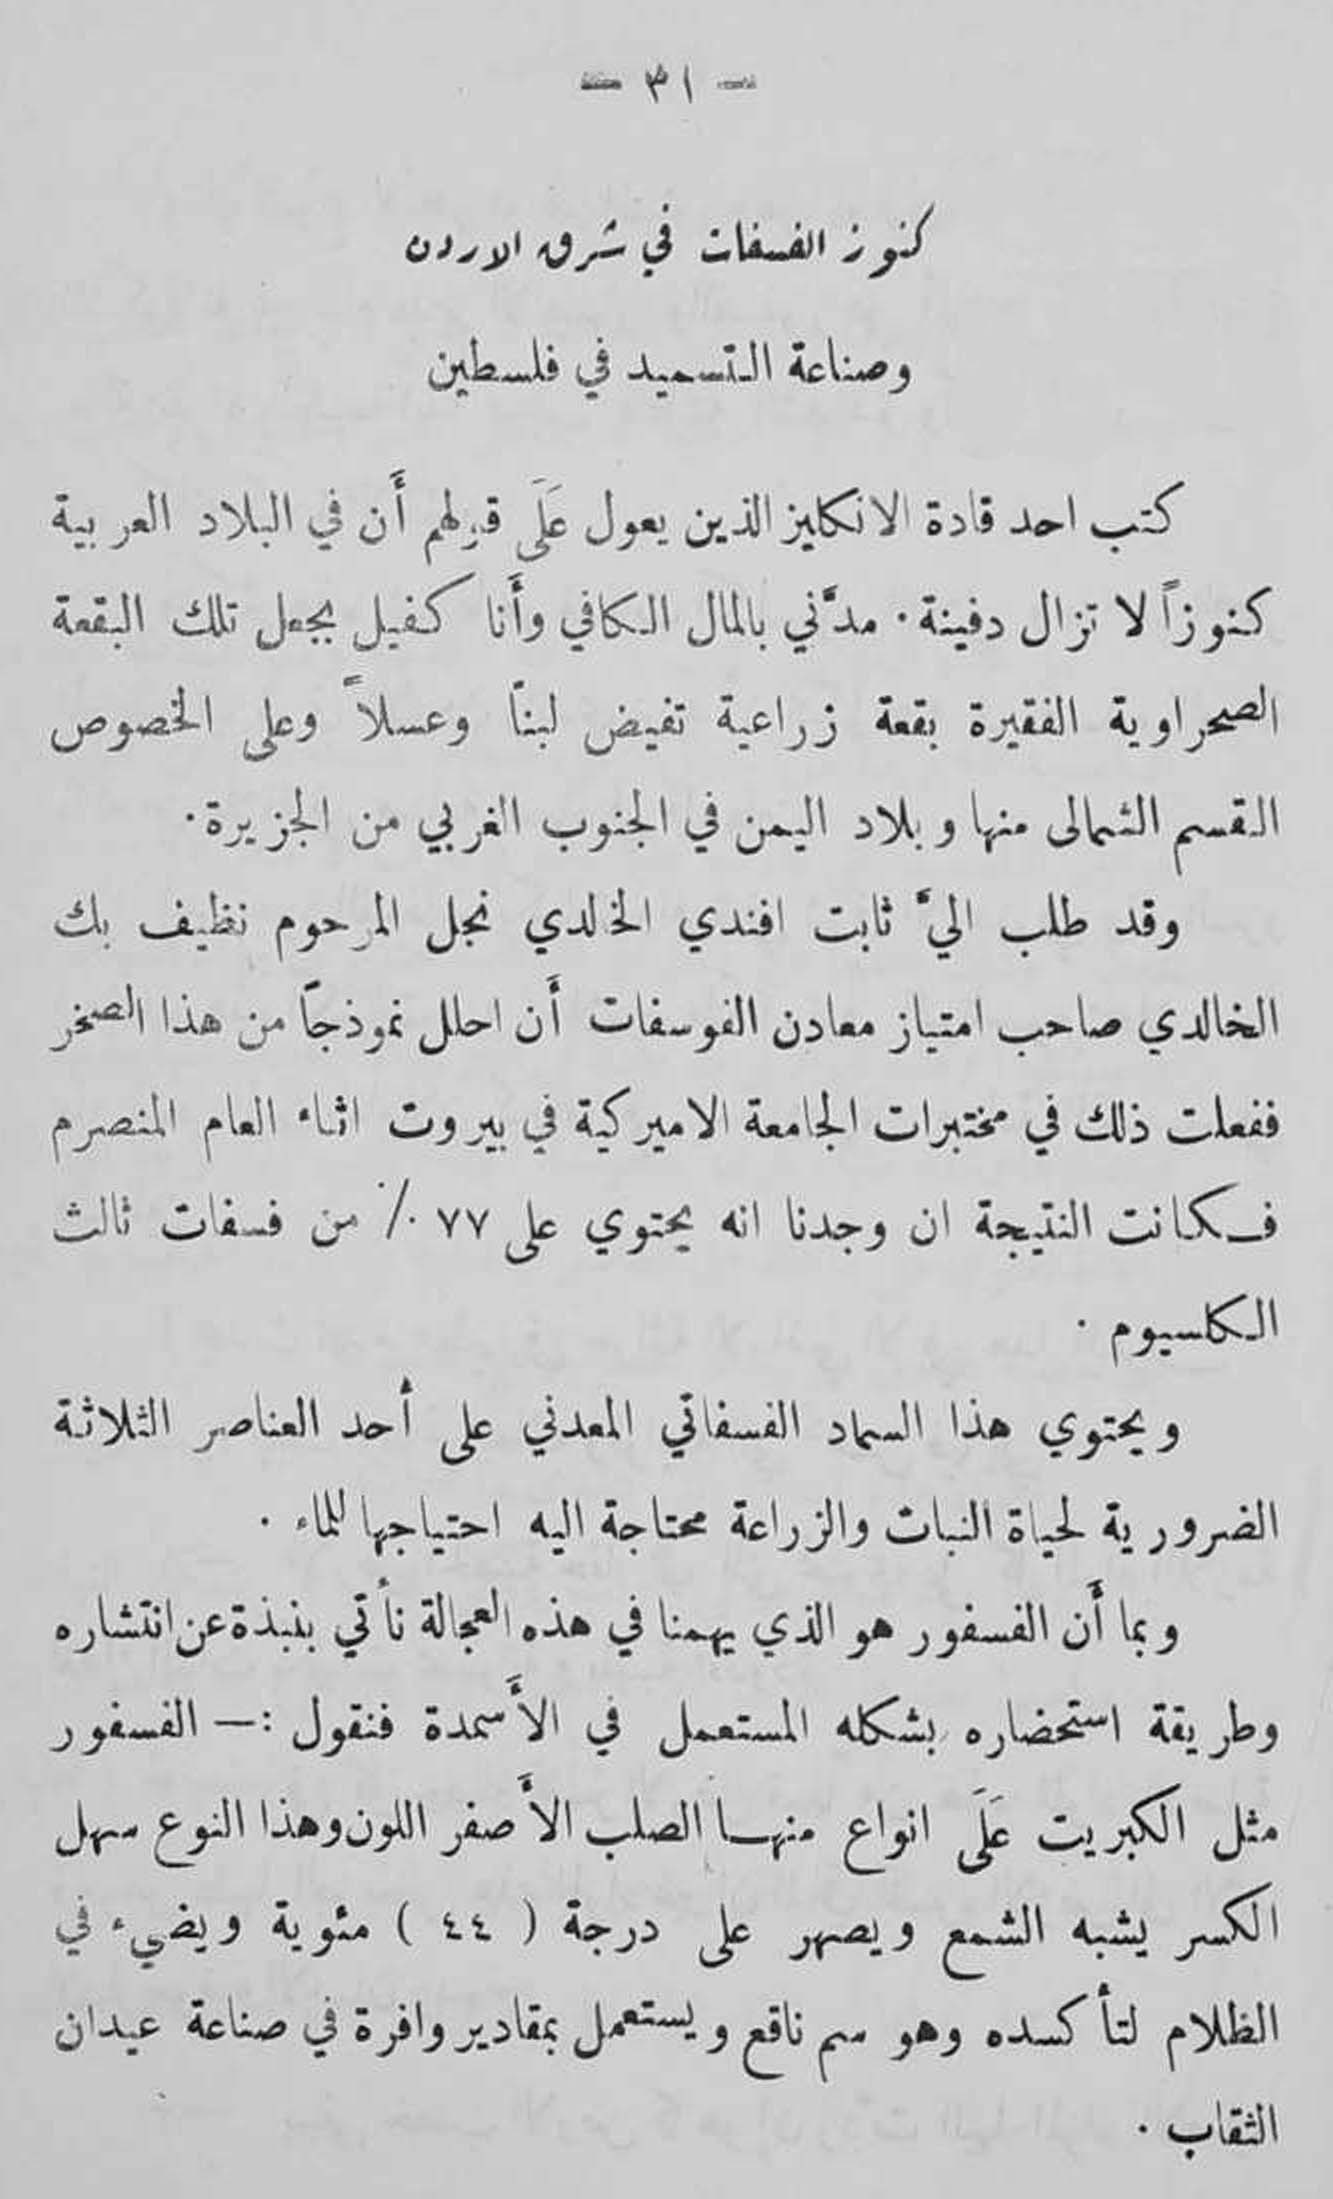 — ٣١ —
كنوز الفسفات في شرق الاردن
وصناعة التسميد في فلسطين
كتب احد قادة الانكليز الذين يعول عَلَى قولهم أَن في البلاد العربية
كنوزاً لا تزال دفينة. مدَّني بالمال الكافي وأَنا كفيل بجعل تلك البقعة
الصحراوية الفقيرة بقعة زراعية تفيض لبنًا وعسلاً وعلى الخصوص
القسم الشمالى منها وبلاد اليمن في الجنوب الغربي من الجزيرة.
وقد طلب اليَّ ثابت افندي الخالدي نجل المرحوم نظيف بك
الخالدي صاحب امتياز معادن الفوسفات أَن احلل نموذجًا من هذا الصخر
ففعلت ذلك في مختبرات الجامعة الاميركية في بيروت اثناء العام المنصرم
فكانت النتيجة ان وجدنا انه يحتوي على ٧٧ ٪ من فسفات ثالث
الكلسيوم .
ويحتوي هذا السماد الفسفاتي المعدني على أحد العناصر الثلاثة
الضرورية لحياة النبات والزراعة محتاجة اليه احتياجها للماء .
وبما أَن الفسفور هو الذي يهمنا في هذه العجالة نأتي بنبذة عن انتشاره
وطريقة استحضاره بشكله المستعمل في الأَسمدة فنقول :— الفسفور
مثل الكبريت عَلَى انواع منها الصلب الأَصفر اللون وهذا النوع سهل
الكسر يشبه الشمع ويصهر على درجة ( ٤٤ ) مئوية ويضيء في
الظلام لتأكسده وهو سم ناقع ويستعمل بمقادير وافرة في صناعة عيدان
الثقاب .